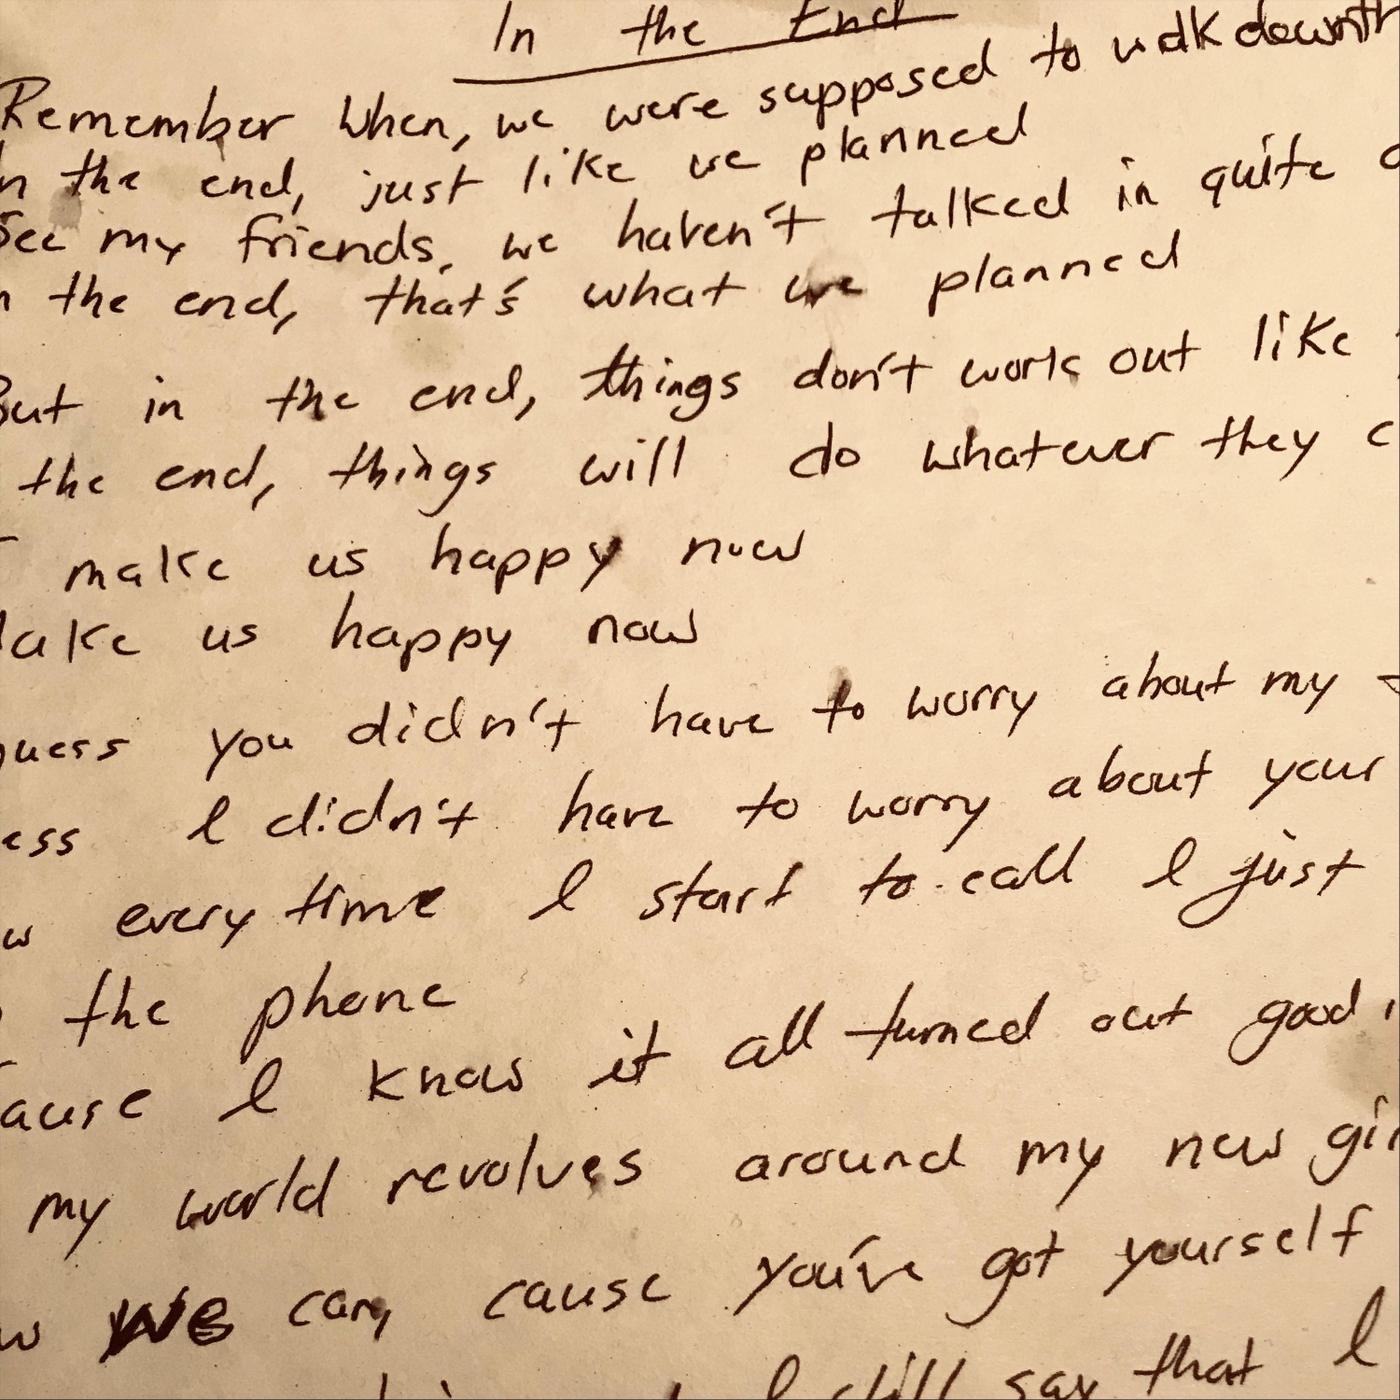 In the End
Remember When, we were supposed to walk down th
In the end, just like we planned
See my friends, we haven't talked in quite a
In the end, that's what we planned
But in the end, things don't work out like
the end, things will do whatever they c
make us happy now
Make us happy now
guess you didn't have to worry about my
ess I didn't have to worry about your
w every time I start to call I just
the phone
ause I know it all turned out good
my world revolves around my new gir
w we can, cause you've got yourself
I still say that I